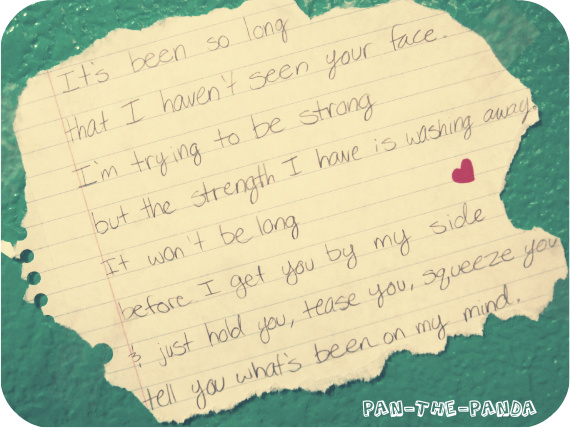 It's been so long
that I haven't seen your face.
I'm trying to be strong
but the strength I have is washing away.
It won't be long
before I get you by my side
& just hold you, tease you, squeeze you
tell you what's been on my mind.
PAN-THE-PANDA